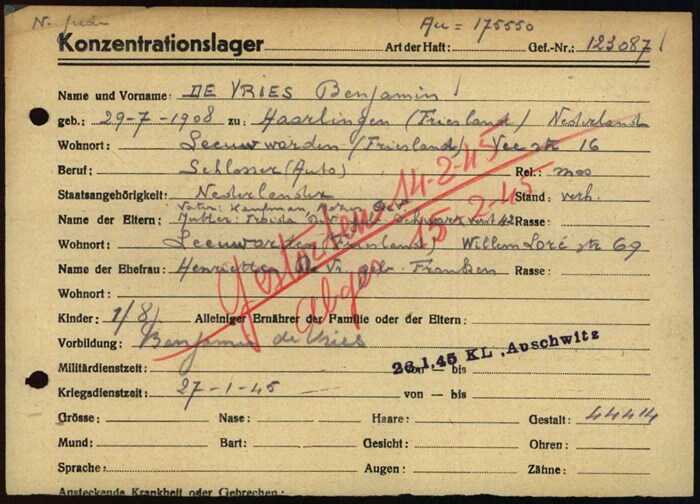 Au = 175550
Konzentrationslager Art der Haft: Gef.-Nr.: 123087
Name und Vorname: DE VRIES Benjamin
geb.: 29-7-1908 zu: Haarlingen (Friesland) Nederland
Wohnort: Leeuwarden (Friesland) Vee str 16
Beruf: Schlosser (Auto) Rel.: mos
Staatsangehörigkeit: Nederlander Stand: verh.
Vater: Kaufman,
Name der Eltern: Mutter: Rasse:
Wohnort: Leeuwarden (Friesland) Willem Loré str 69
Name der Ehefrau: Henriette de Vr. geb. Franken Rasse:
Wohnort:
Kinder: 1/8/ Alleiniger Ernährer der Familie oder der Eltern:
Vorbildung: Benjamin de Vries
Gestorben 14-2-45
abges 15-2-45
26.1.45 KL. Auschwitz
Militärdienstzeit: von — bis
Kriegsdienstzeit: 27-1-45 von — bis
Grösse: Nase: Haare: Gestalt: 44414
Mund: Bart: Gesicht: Ohren:
Sprache: Augen: Zähne:
Ansteckende Krankheit oder Gebrechen: